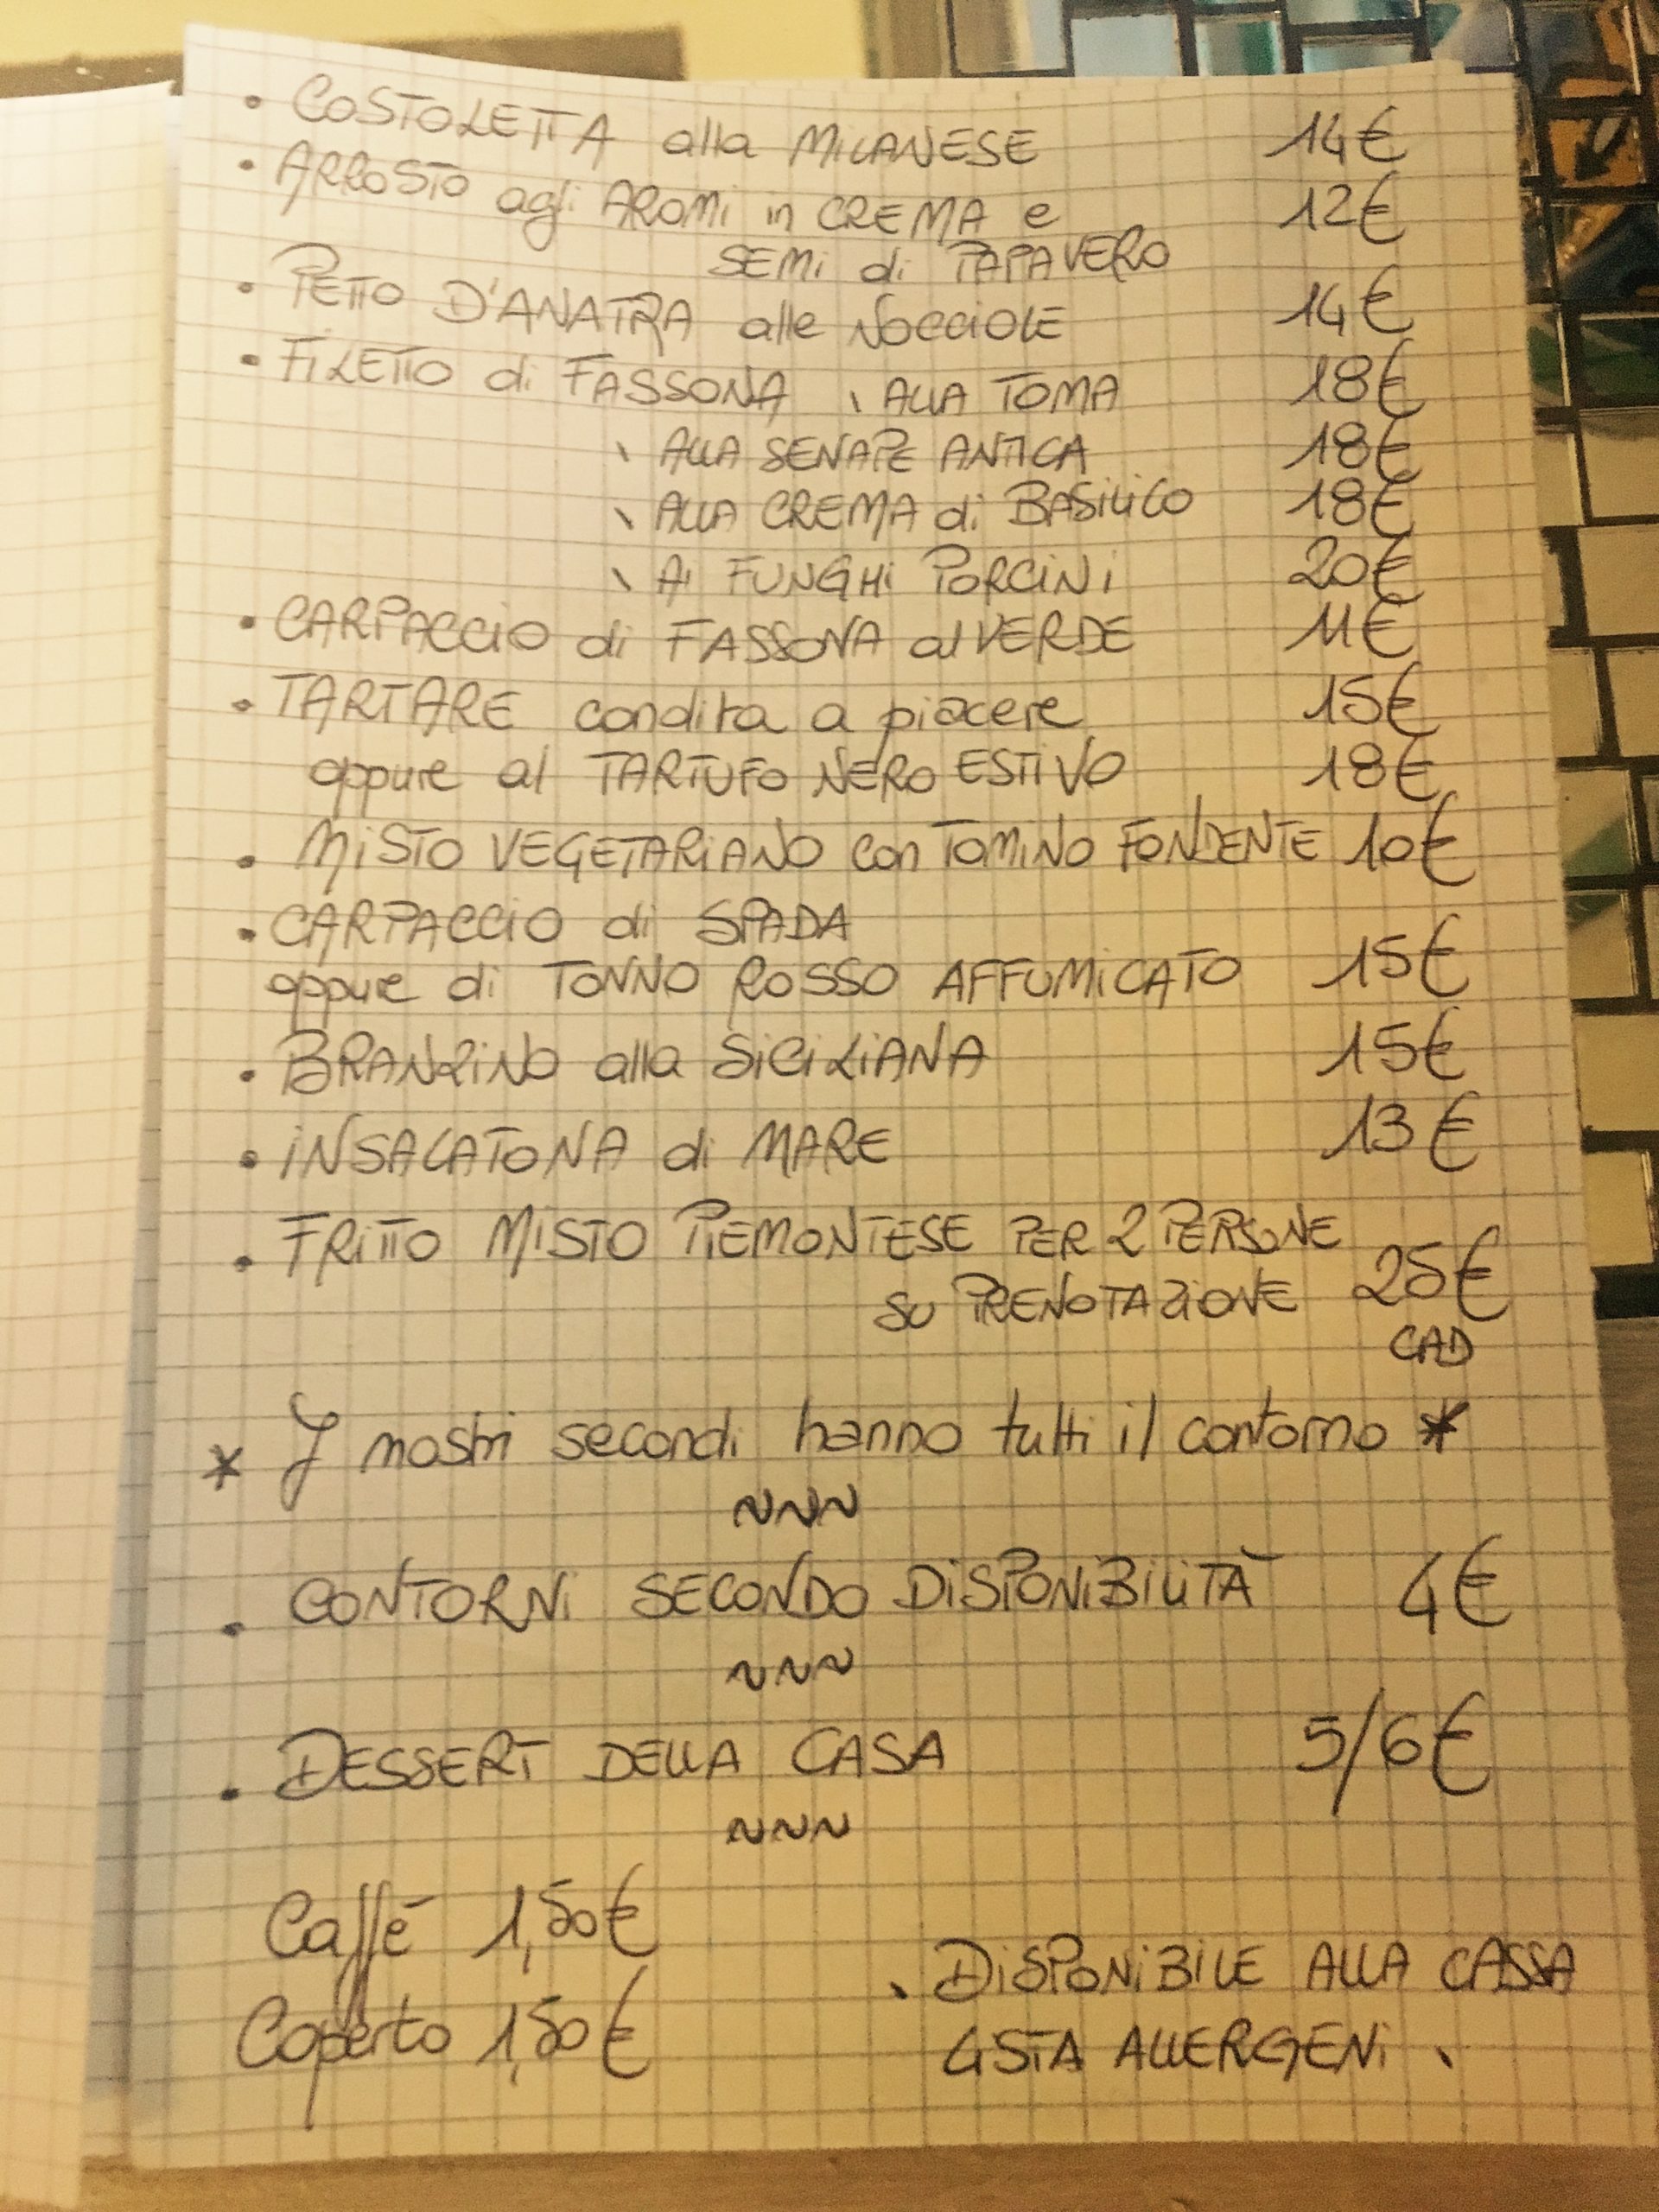 • COSTOLETTA alla MILANESE 14€
• ARROSTO agli AROMI in CREMA e 12€
SEMI di PAPAVERO
• PETTO D'ANATRA alle NOCCIOLE 14€
• FILETTO di FASSONA \ ALLA TOMA 18€
\ ALLA SENAPE ANTICA 18€
\ ALLA CREMA di BASILICO 18€
\ AI FUNGHI PORCINI 20€
• CARPACCIO di FASSONA al VERDE 11€
• TARTARE condita a piacere 15€
oppure al TARTUFO NERO ESTIVO 18€
• MISTO VEGETARIANO con TOMINO FONDENTE 10€
• CARPACCIO di SPADA
oppure di TONNO ROSSO AFFUMICATO 15€
• BRANZINO alla SICILIANA 15€
• INSALATONA di MARE 13€
• FRITTO MISTO PIEMONTESE PER 2 PERSONE
SU PRENOTAZIONE 25€
CAD
* I nostri secondi hanno tutti il contorno *
~~~
• CONTORNI SECONDO DISPONIBILITÀ 4€
~~~
• DESSERT DELLA CASA 5/6€
~~~
Caffè 1,50€
Coperto 1,50€
\ DISPONIBILE ALLA CASSA
LISTA ALLERGENI \